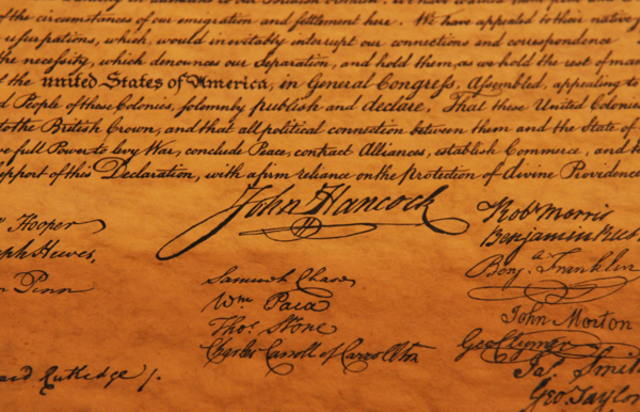 of the circumstances of our emigration and settlement here. We have appealed to their native
usurpations, which, would inevitably interrupt our connections and correspondence
the necessity, which denounces our Separation, and hold them, as we hold the rest of man
of the united States of America, in General Congress, Assembled, appealing to
d People of these Colonies, solemnly publish and declare, That these United Coloni
to the British Crown, and that all political connection between them and the State of
ve full Power to levy War, conclude Peace, contract Alliances, establish Commerce, and
upport of this Declaration, with a firm reliance on the protection of divine Providence
John Hancock
Hooper
seph Hewes,
n Penn
ard Rutledge /.
Samuel Chase
Wm Paca
Thos. Stone
Charles Carroll of Carrollton
Robt Morris
Benjamin Rush
Benj. Franklin
John Morton
Geo Clymer
Jas. Smith
Geo. Taylor